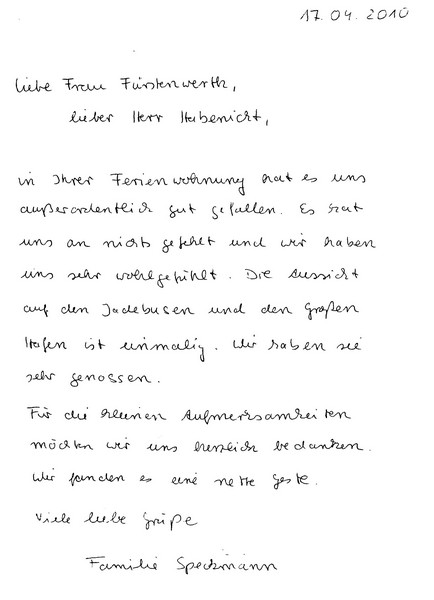 17.04.2010
liebe Frau Fürstenwerth,
lieber Herr Habenicht,
in Ihrer Ferienwohnung hat es uns
außerordentlich gut gefallen. Es hat
uns an nichts gefehlt und wir haben
uns sehr wohlgefühlt. Die Aussicht
auf den Jadebusen und den Großen
Hafen ist einmalig. Wir haben sie
sehr genossen.
Für die kleinen Aufmerksamkeiten
möchten wir uns herzlich bedanken.
Wir fanden es eine nette Geste.
Viele liebe Grüße
Familie Speckmann